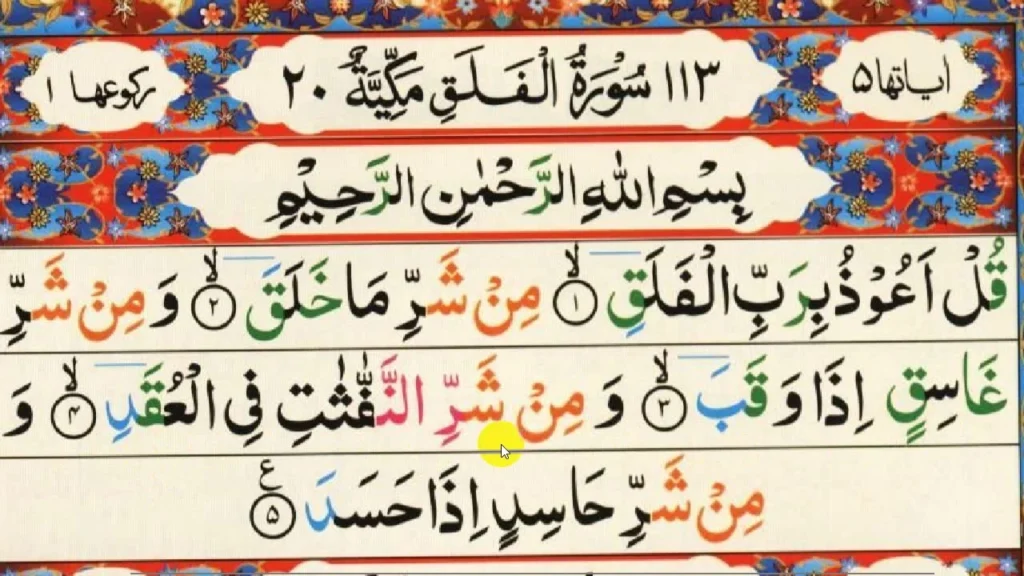 اٰیاتها ۵ ۱۱۳ سُوْرَةُ الْفَلَقِ مَكِّیَّةٌ ۲۰ ركوعها ۱
بِسْمِ اللهِ الرَّحْمٰنِ الرَّحِیْمِ
قُلْ اَعُوْذُ بِرَبِّ الْفَلَقِ ۙ﴿۱﴾ مِنْ شَرِّ مَا خَلَقَ ۙ﴿۲﴾ وَ مِنْ شَرِّ
غَاسِقٍ اِذَا وَقَبَ ۙ﴿۳﴾ وَ مِنْ شَرِّ النَّفّٰثٰتِ فِی الْعُقَدِ ۙ﴿۴﴾ وَ
مِنْ شَرِّ حَاسِدٍ اِذَا حَسَدَ ﴿۵﴾ ع